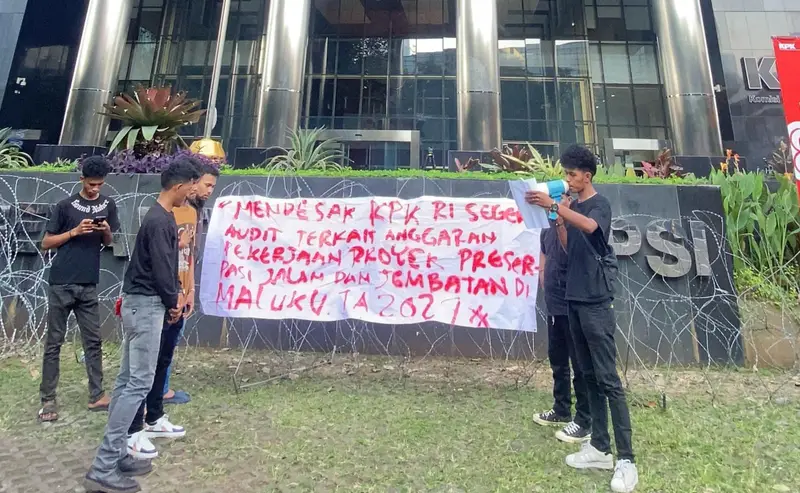 KPK
K
Komisi
"MENDESAK KPK RI SEGE
AUDIT TERKAIT ANGGARAN
PEKERJAAN PROYEK PRESER-
PASI JALAN DAN JEMBATAN DI
MALUKU. TA 2021
PSI